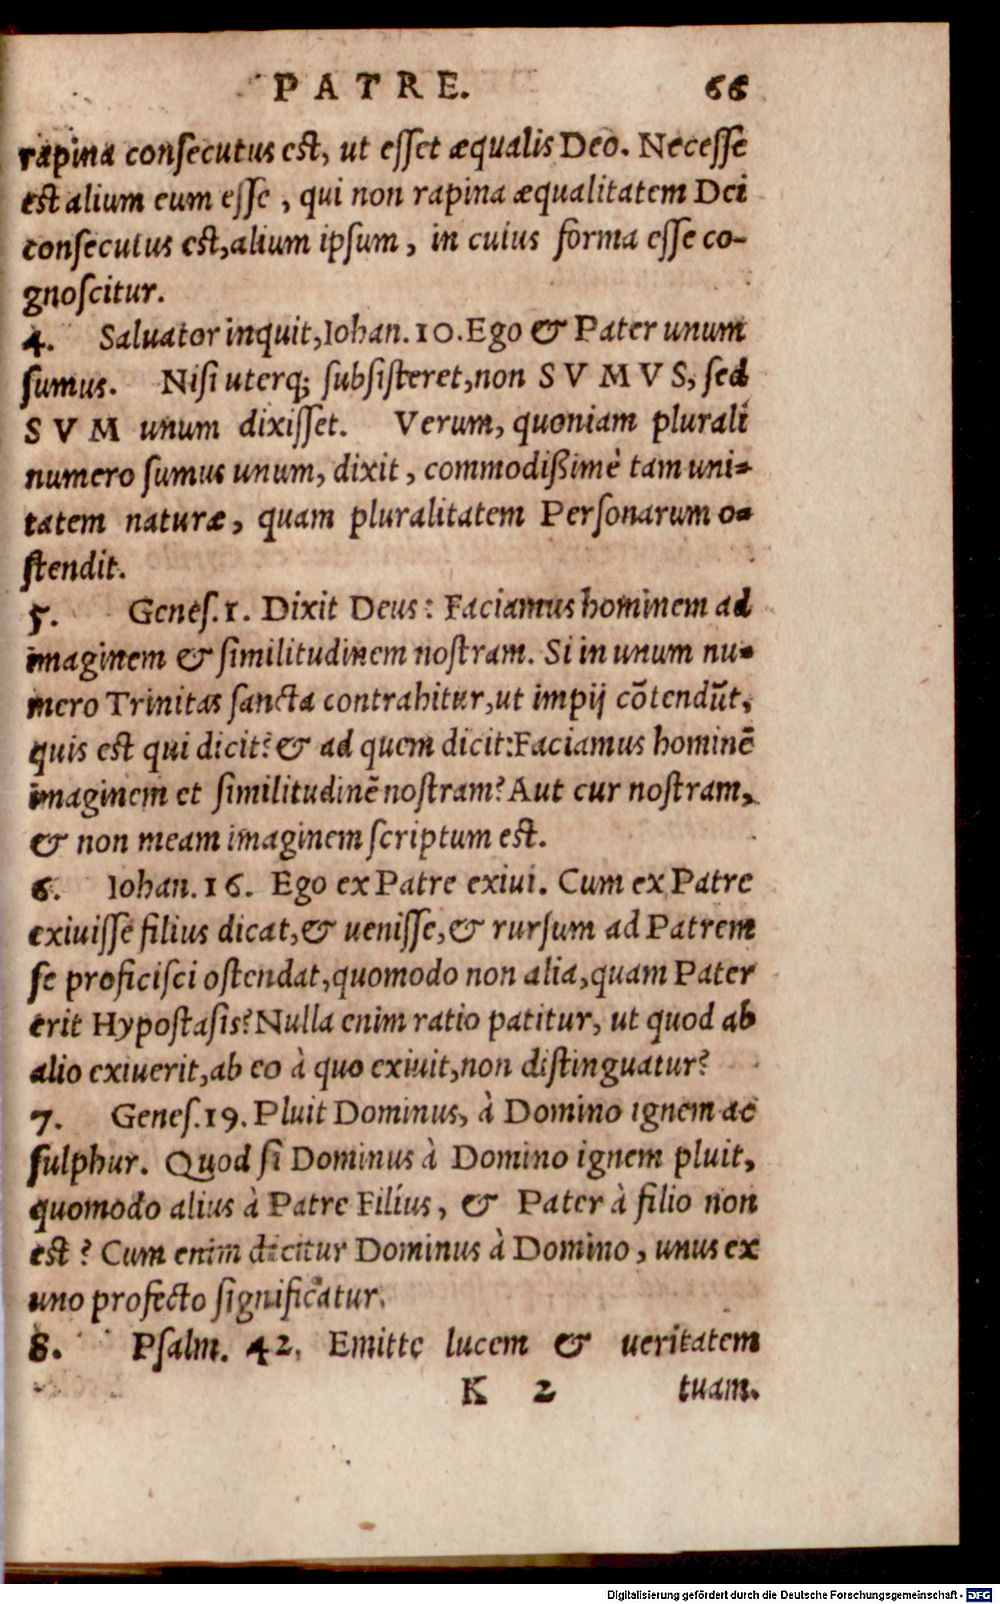 PATRE. 66
rapina consecutus est, ut esset æqualis Deo. Necesse
est alium eum esse, qui non rapina æqualitatem Dei
consecutus est, alium ipsum, in cuius forma esse co-
gnoscitur.
4. Saluator inquit, Iohan. 10. Ego & Pater unum
sumus. Nisi uterq; subsisteret, non SVMVS, sed
SVM unum dixisset. Verum, quoniam plurali
numero sumus unum, dixit, commodißimè tam uni-
tatem naturæ, quam pluralitatem Personarum o-
stendit.
5. Genes. 1. Dixit Deus: Faciamus hominem ad
imaginem & similitudinem nostram. Si in unum nu-
mero Trinitas sancta contrahitur, ut impij cõtendũt,
quis est qui dicit? & ad quem dicit: Faciamus hominẽ
imaginem et similitudinẽ nostram? Aut cur nostram,
& non meam imaginem scriptum est.
6. Iohan. 16. Ego ex Patre exiui. Cum ex Patre
exiuisse filius dicat, & uenisse, & rursum ad Patrem
se proficisci ostendat, quomodo non alia, quam Pater
erit Hypostasis? Nulla enim ratio patitur, ut quod ab
alio exiuerit, ab eo à quo exiuit, non distinguatur?
7. Genes. 19. Pluit Dominus, à Domino ignem ac
sulphur. Quod si Dominus à Domino ignem pluit,
quomodo alius à Patre Filius, & Pater à filio non
est? Cum enim dicitur Dominus à Domino, unus ex
uno profecto significatur.
8. Psalm. 42. Emitte lucem & ueritatem
K 2 tuam.
Digitalisierung gefördert durch die Deutsche Forschungsgemeinschaft - DFG